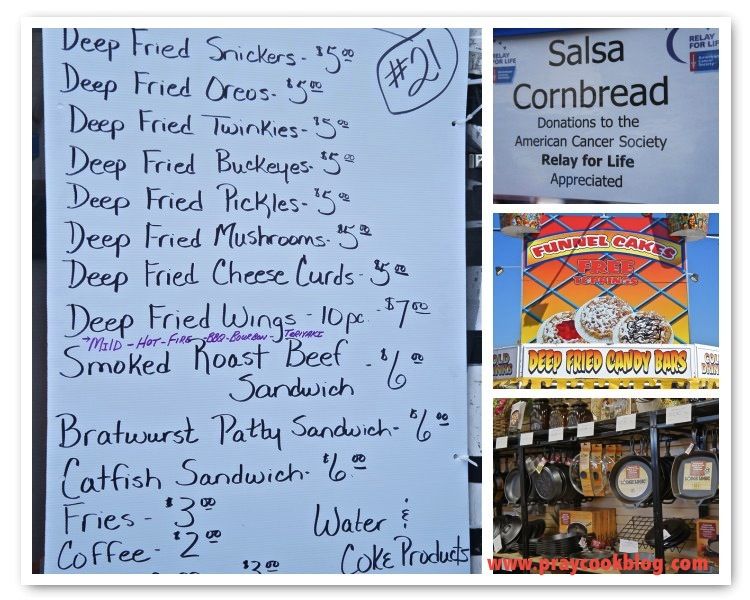 Deep Fried Snickers - $5.00
#21
Deep Fried Oreos - $5.00
Deep Fried Twinkies - $5.00
Deep Fried Buckeyes - $5.00
Deep Fried Pickles - $5.00
Deep Fried Mushrooms - $5.00
Deep Fried Cheese Curds - $5.00
Deep Fried Wings - 10pc. - $7.00
MILD - HOT - FIRE - BBQ - BOURBON - TERIYAKI
Smoked Roast Beef - $6.00
Sandwich
Bratwurst Patty Sandwich - $6.00
Catfish Sandwich - $6.00
Fries - $3.00
Water &
Coffee - $2.00
Coke Products
RELAY
FOR LIFE
Salsa
Cornbread
Donations to the
American Cancer Society
Relay for Life
Appreciated
FUNNEL CAKES
FREE
TOPPINGS
COLD
DEEP FRIED CANDY BARS
COLD
LODGE LOGIC
www.praycookblog.com